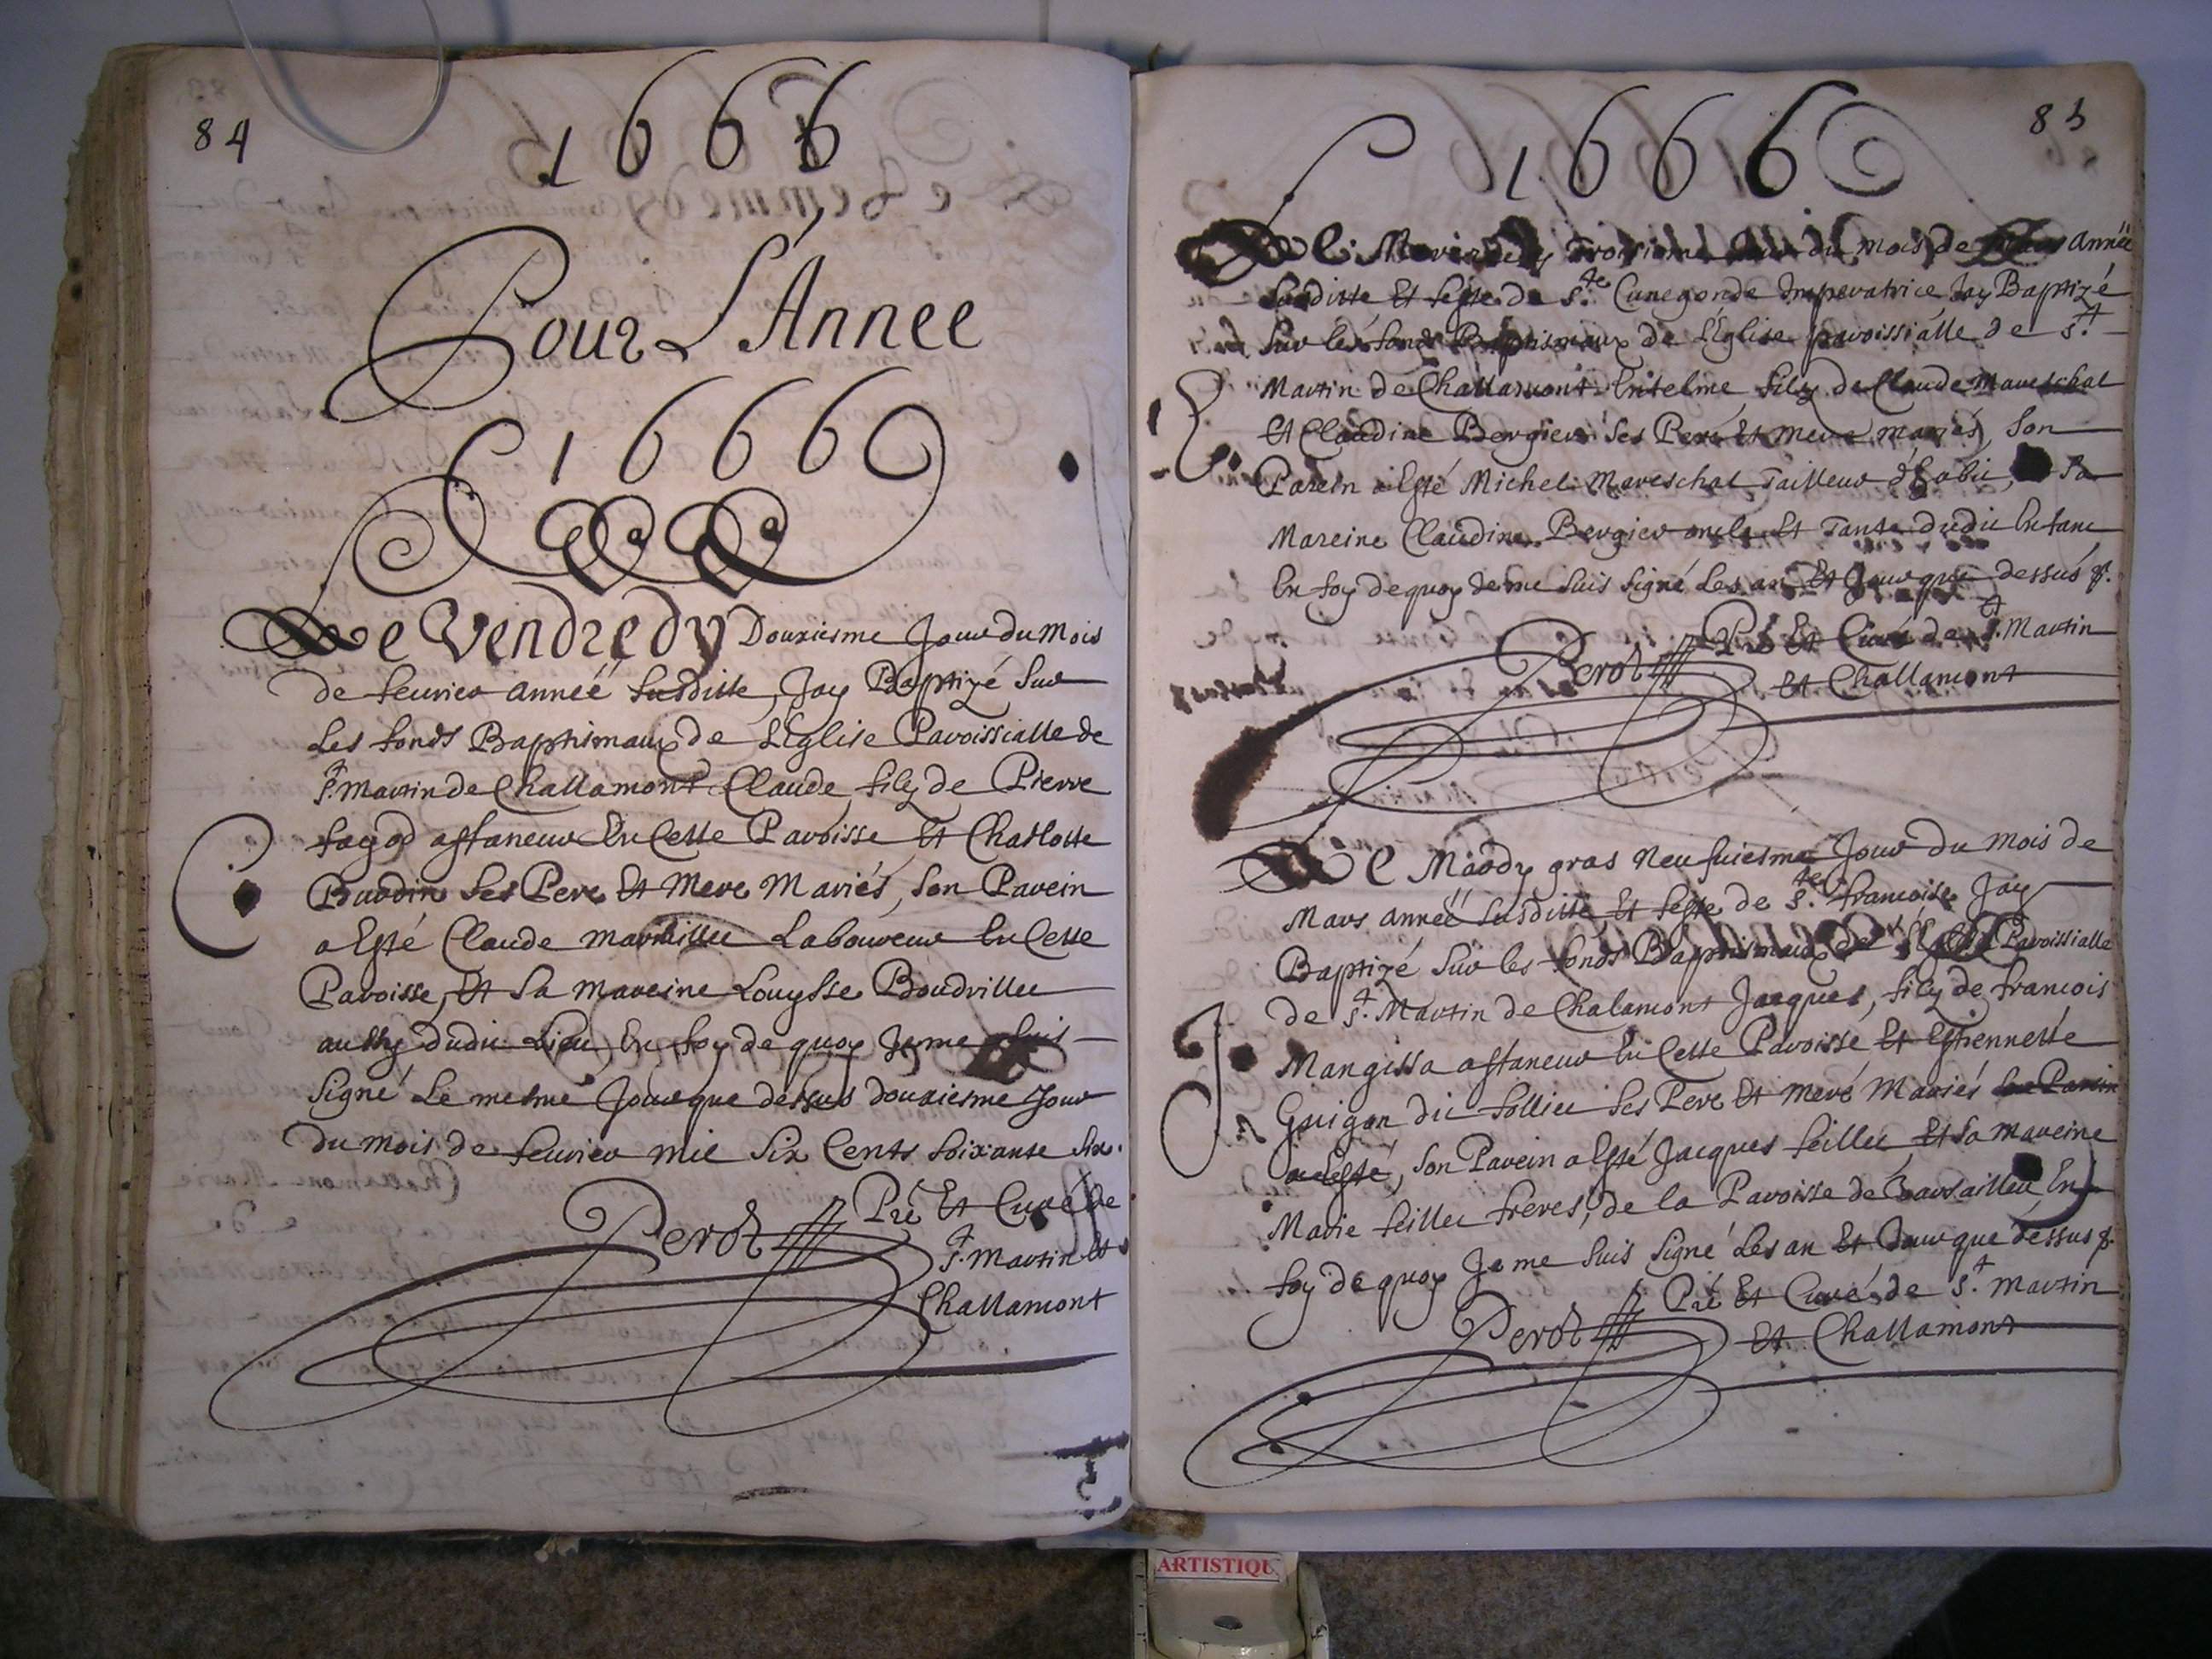 84
1666
Pour L'Année
1666
Le Vendredy Douziesme Jour du Mois
de feurier année susditte, Jay Baptizé sur
Les fonds Baptismaux de L'Eglise Paroissialle de
St. Martin de Challamont Claude, filz de Pierre
fagod affaneur En Cette Paroisse Et Charlotte
Ses Pere Et Mere Mariés, son Parein
a Esté Claude Laboureur En Cette
Paroisse, Et sa mareine Louysse Boudrillet
aussy dudit Lieu, En foy de quoy Je me suis
signé Le mesme Jour que dessus douziesme Jour
du mois de feurier mil six Cents soixante six.
Perod Pré Et Curé de
St. Martin Et
Challamont
85
1666
Le Mercredy Troisieme Jour du mois de Mars Année
susditte Et feste de Ste. Cunegonde Imperatrice Jay Baptizé
sur les fonds Baptismaux de L'Eglise paroissialle de St.
Martin de Challamont Entelme filz de Claude Mareschal
Et Claudine Bergier ses Pere Et mere mariés, son
Parein a Esté Michel Mareschal Tailleur d'habit, sa
Mareine Claudine Bergier oncle Et Tante dudit Enfant
En foy de quoy Je me suis signé Les an Et Jour que dessus &.
Perod Pré Et Curé de St. Martin
Et Challamont
Le Mardy gras Neufuiesme Jour du mois de
Mars année susditte Et feste de Ste. francoise Jay
Baptizé sur les fonds Baptismaux de L'Eglise Paroissialle
de St. Martin de Chalamont Jacques, filz de francois
Mangissa affaneur En Cette Paroisse Et Estiennette
Guigon dit sollier ses Pere Et mere Mariés son Parein
a Esté, son Parein a Esté Jacques feillet Et sa mareine
Marie feillet freres, de la Paroisse de En
foy de quoy Je me suis signé Les an Et Jour que dessus &.
Perod Pré Et Curé de St. Martin
Et Challamont
ARTISTIQU